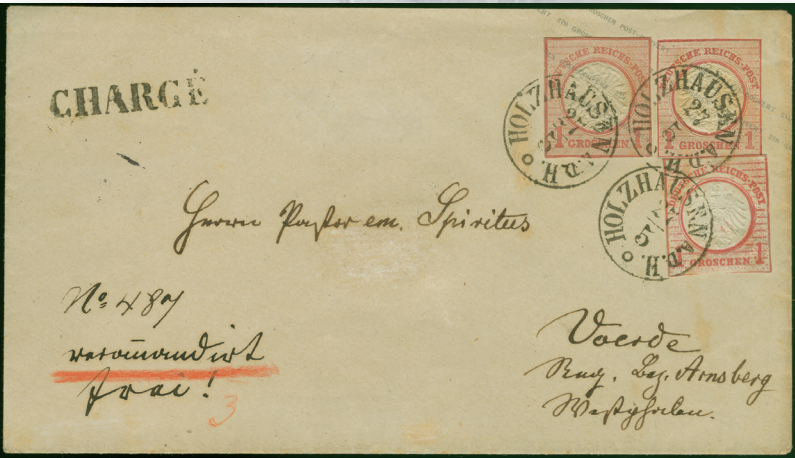 CHARGÉ
EIN GROSCHEN POST-COUVERT
DEUTSCHE REICHS-POST
1 GROSCHEN 1
DEUTSCHE REICHS-POST
1 GROSCHEN 1
DEUTSCHE REICHS-POST
1 GROSCHEN 1
HOLZHAUSEN A.D.H.
27
HOLZHAUSEN A.D.H.
27
5
HOLZHAUSEN A.D.H.
5
Herrn Pastor em. Spiritus
No 487
recommandirt
frei!
3
Voerde
Reg. Bez. Arnsberg
Westphalen.